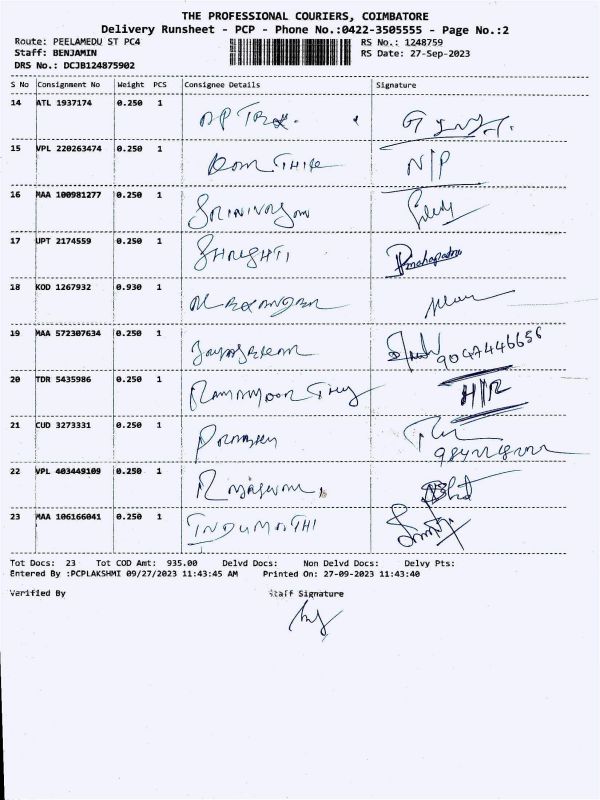 THE PROFESSIONAL COURIERS, COIMBATORE
Delivery Runsheet - PCP - Phone No.:0422-3505555 - Page No.:2
Route: PEELAMEDU ST PC4
RS No.: 1248759
Staff: BENJAMIN
RS Date: 27-Sep-2023
DRS No.: DCJB124875902
S No Consignment No Weight PCS Consignee Details Signature
14 ATL 1937174 0.250 1
15 VPL 220263474 0.250 1 N/P
16 MAA 100981277 0.250 1
17 UPT 2174559 0.250 1 SHRISHTI
18 KOD 1267932 0.930 1
19 MAA 572307634 0.250 1 9047446656
20 TDR 5435986 0.250 1
21 CUD 3273331 0.250 1
22 VPL 403449109 0.250 1
23 MAA 106166041 0.250 1 INDUMATHI
Tot Docs: 23 Tot COD Amt: 935.00 Delvd Docs: Non Delvd Docs: Delvy Pts:
Entered By :PCPLAKSHMI 09/27/2023 11:43:45 AM Printed On: 27-09-2023 11:43:40
Verified By Staff Signature